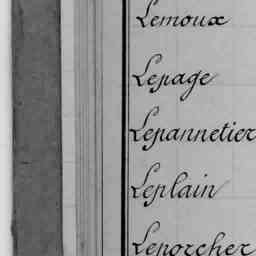 Lemoux
Lepage
Lepannetier
Leplain
Leporcher